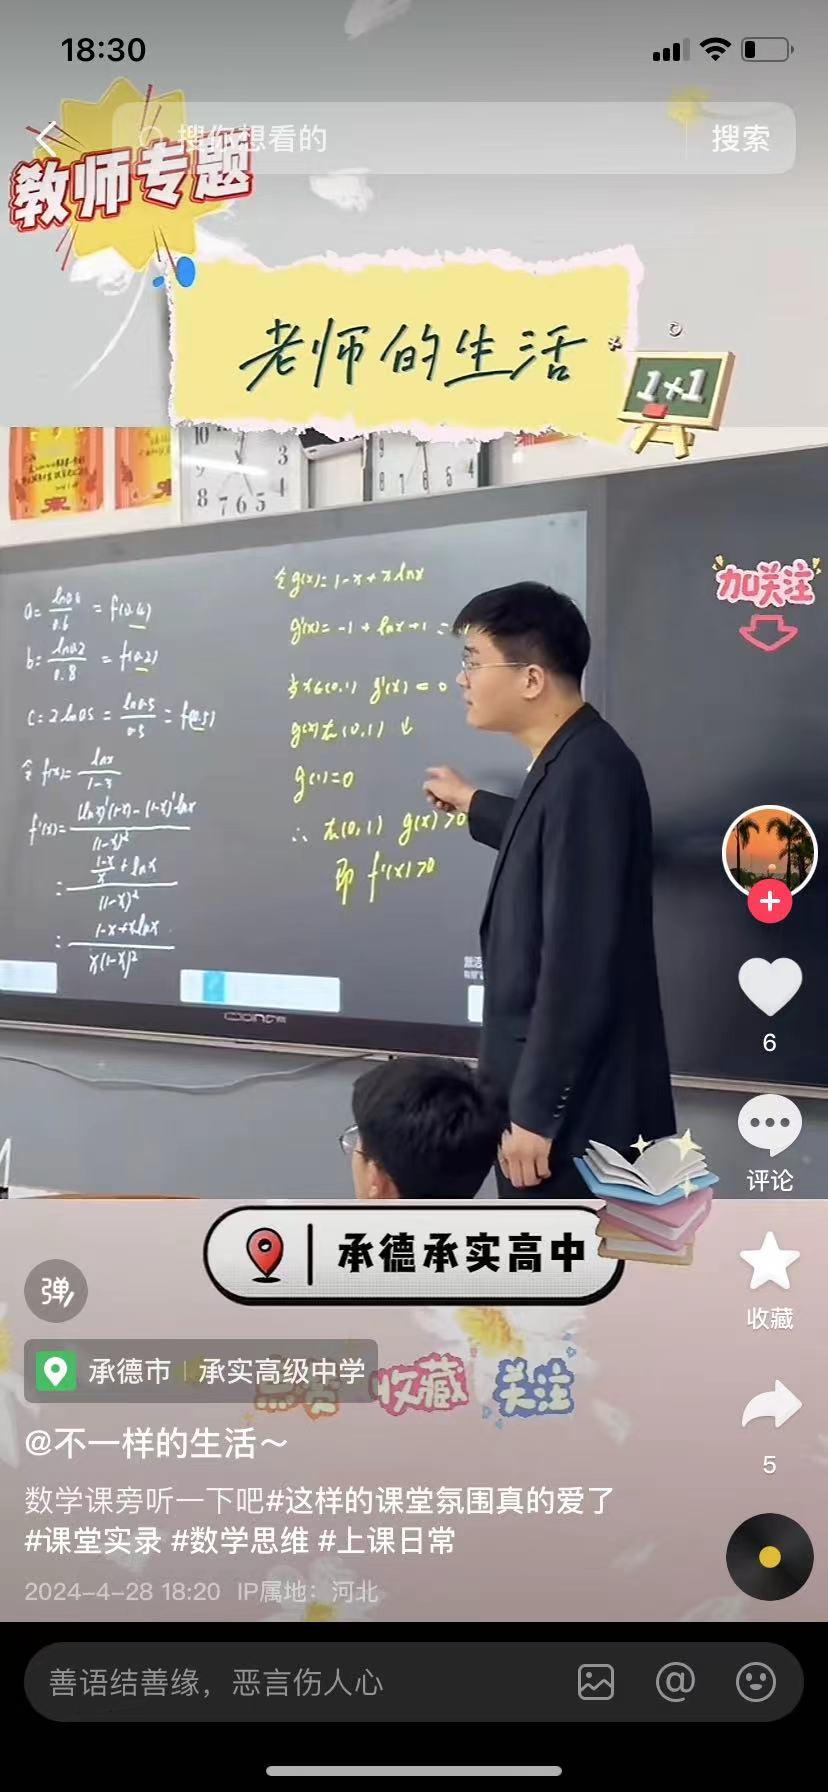 18:30
搜你想看的
搜索
教师专题
老师的生活
1+1
10
9
3
8 7 6 5 4
加关注
a= ln0.4/0.6 = f(0.4)
b= ln0.2/0.8 = f(0.2)
c=2ln0.5 = ln0.5/0.5 = f(0.5)
令 f(x)= lnx/1-x
f'(x)= (lnx)'(1-x)-(1-x)'lnx/(1-x)²
= 1-x/x+lnx/(1-x)²
= 1-x+xlnx/x(1-x)²
令g(x)=1-x+xlnx
g'(x)=-1+lnx+1=
当x∈(0,1) g'(x)<0
g(x)在(0,1)↓
g(1)=0
∴在(0,1) g(x)>0
即 f'(x)>0
6
评论
承德承实高中
弹
收藏
承德市 承实高级中学
点赞 收藏 关注
@不一样的生活~
5
数学课旁听一下吧#这样的课堂氛围真的爱了
#课堂实录 #数学思维 #上课日常
2024-4-28 18:20 IP属地：河北
善语结善缘，恶言伤人心
@